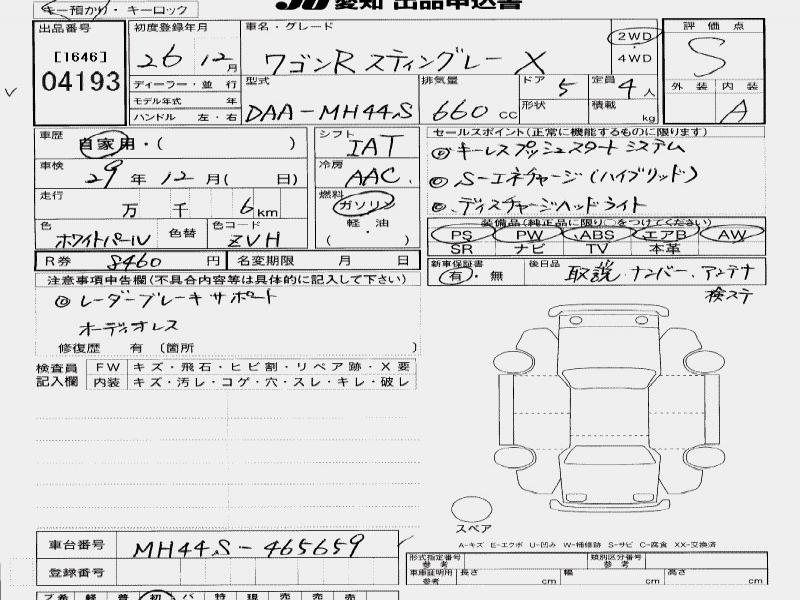 キー預かり・キーロック
JU 愛知 出品申込書
出品番号
[1646]
04193
初度登録年月
26 12月
ディーラー・並 行
モデル年式 年
ハンドル 左・右
車名・グレード
ワゴンR スティングレー X
2WD
4WD
型式
DAA-MH44S
排気量
660 CC
ドア 5
形状
定員 4 人
積載 kg
評価点
S
外装 内装
A
車歴
自家用・( )
車検
29年 12月( 日)
走行
万 千 6km
色
ホワイトパール
色替
色コード
ZVH
シフト
IAT
冷房
AAC
燃料
ガソリン
・
軽・油
( )
セールスポイント(正常に機能するものに限ります)
◎キーレスプッシュスタートシステム
◎S-エネチャージ(ハイブリッド)
◎ディスチャージヘッドライト
装備品(純正品に限り○をつけてください)
PS PW ABS エアB AW
SR ナビ TV 本革
R券 8460 円
名変期限 月 日
新車保証書
有・無
後日品
取説 ナンバー. アンテナ
検ステ
注意事項申告欄(不具合内容等は具体的に記入して下さい)
◎レーダーブレーキサポート
オーディオレス
修復歴 有 (箇所 )
検査員
記入欄
FW キズ・飛石・ヒビ割・リペア跡・X要
内装 キズ・汚レ・コゲ・穴・スレ・キレ・破レ
スペア
A-キズ E-エクボ U-凹み W-補修跡 S-サビ C-腐食 XX-交換済
車台番号
MH44S-465659
登録番号
形式指定番号
参考
類別区分番号
参考
車庫証明用
参考
長さ cm 幅 cm 高さ cm